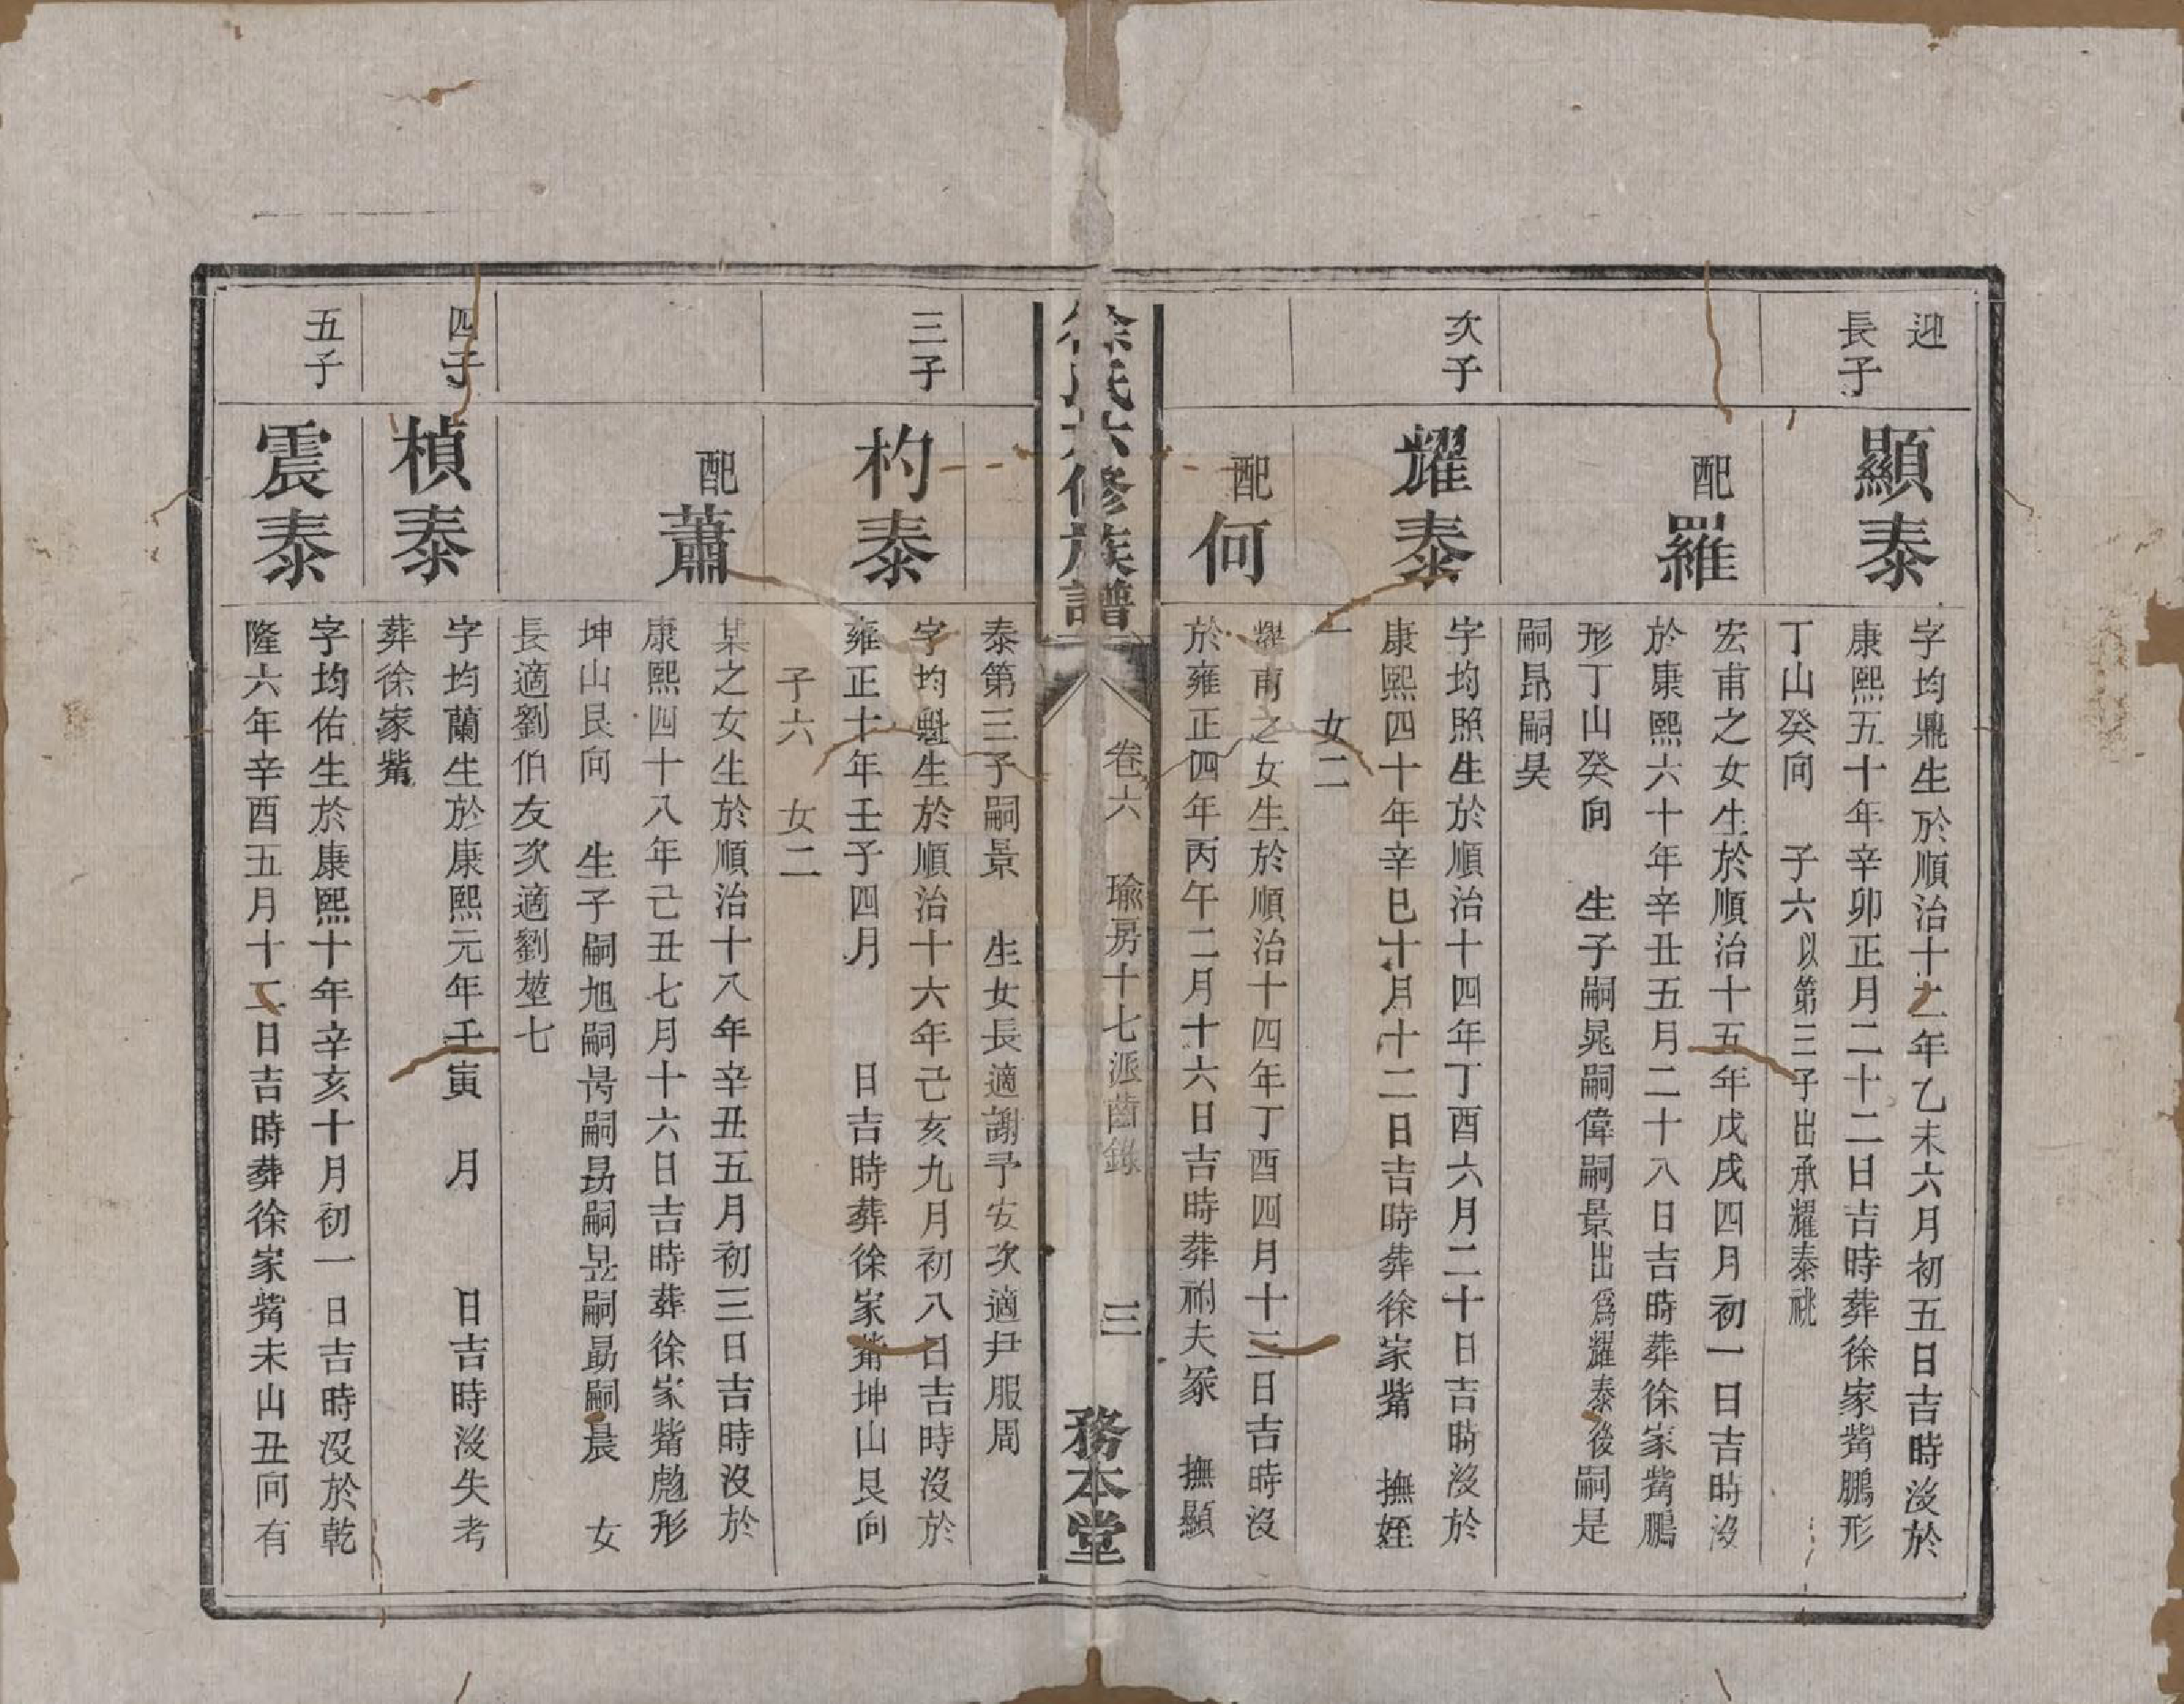 迎
長子
顯泰
字均鼎生於順治十二年乙未六月初五日吉時沒於
康熙五十年辛卯正月二十二日吉時葬徐家嘴鵬形
丁山癸向　子六以第三子出承耀泰祧
配羅
宏甫之女生於順治十五年戊戌四月初一日吉時沒
於康熙六十年辛丑五月二十八日吉時葬徐家嘴鵬
形丁山癸向　生子嗣晃嗣偉嗣景出爲耀泰後嗣是
嗣昴嗣昊
次子
耀泰
字均照生於順治十四年丁酉六月二十日吉時沒於
康熙四十年辛巳十月十二日吉時葬徐家嘴　撫姪
一　女二
配何
耀甫之女生於順治十四年丁酉四月十三日吉時沒
於雍正四年丙午二月十六日吉時葬祔夫冢　撫顯
徐氏六修族譜
卷六　瑜房十七派齒錄　三
務本堂
泰第三子嗣景　生女長適謝予安次適尹服周
三子
杓泰
字均魁生於順治十六年己亥九月初八日吉時沒於
雍正十年壬子四月　日吉時葬徐家嘴坤山艮向
子六　女二
配蕭
某之女生於順治十八年辛丑五月初三日吉時沒於
康熙四十八年己丑七月十六日吉時葬徐家嘴彪形
坤山艮向　生子嗣旭嗣嗣嗣昱嗣勗嗣晨　女
長適劉伯友次適劉堃七
四子
楨泰
字均蘭生於康熙元年壬寅　月　日吉時沒失考
葬徐家嘴
五子
震泰
字均佑生於康熙十年辛亥十月初一日吉時沒於乾
隆六年辛酉五月十二日吉時葬徐家嘴未山丑向有